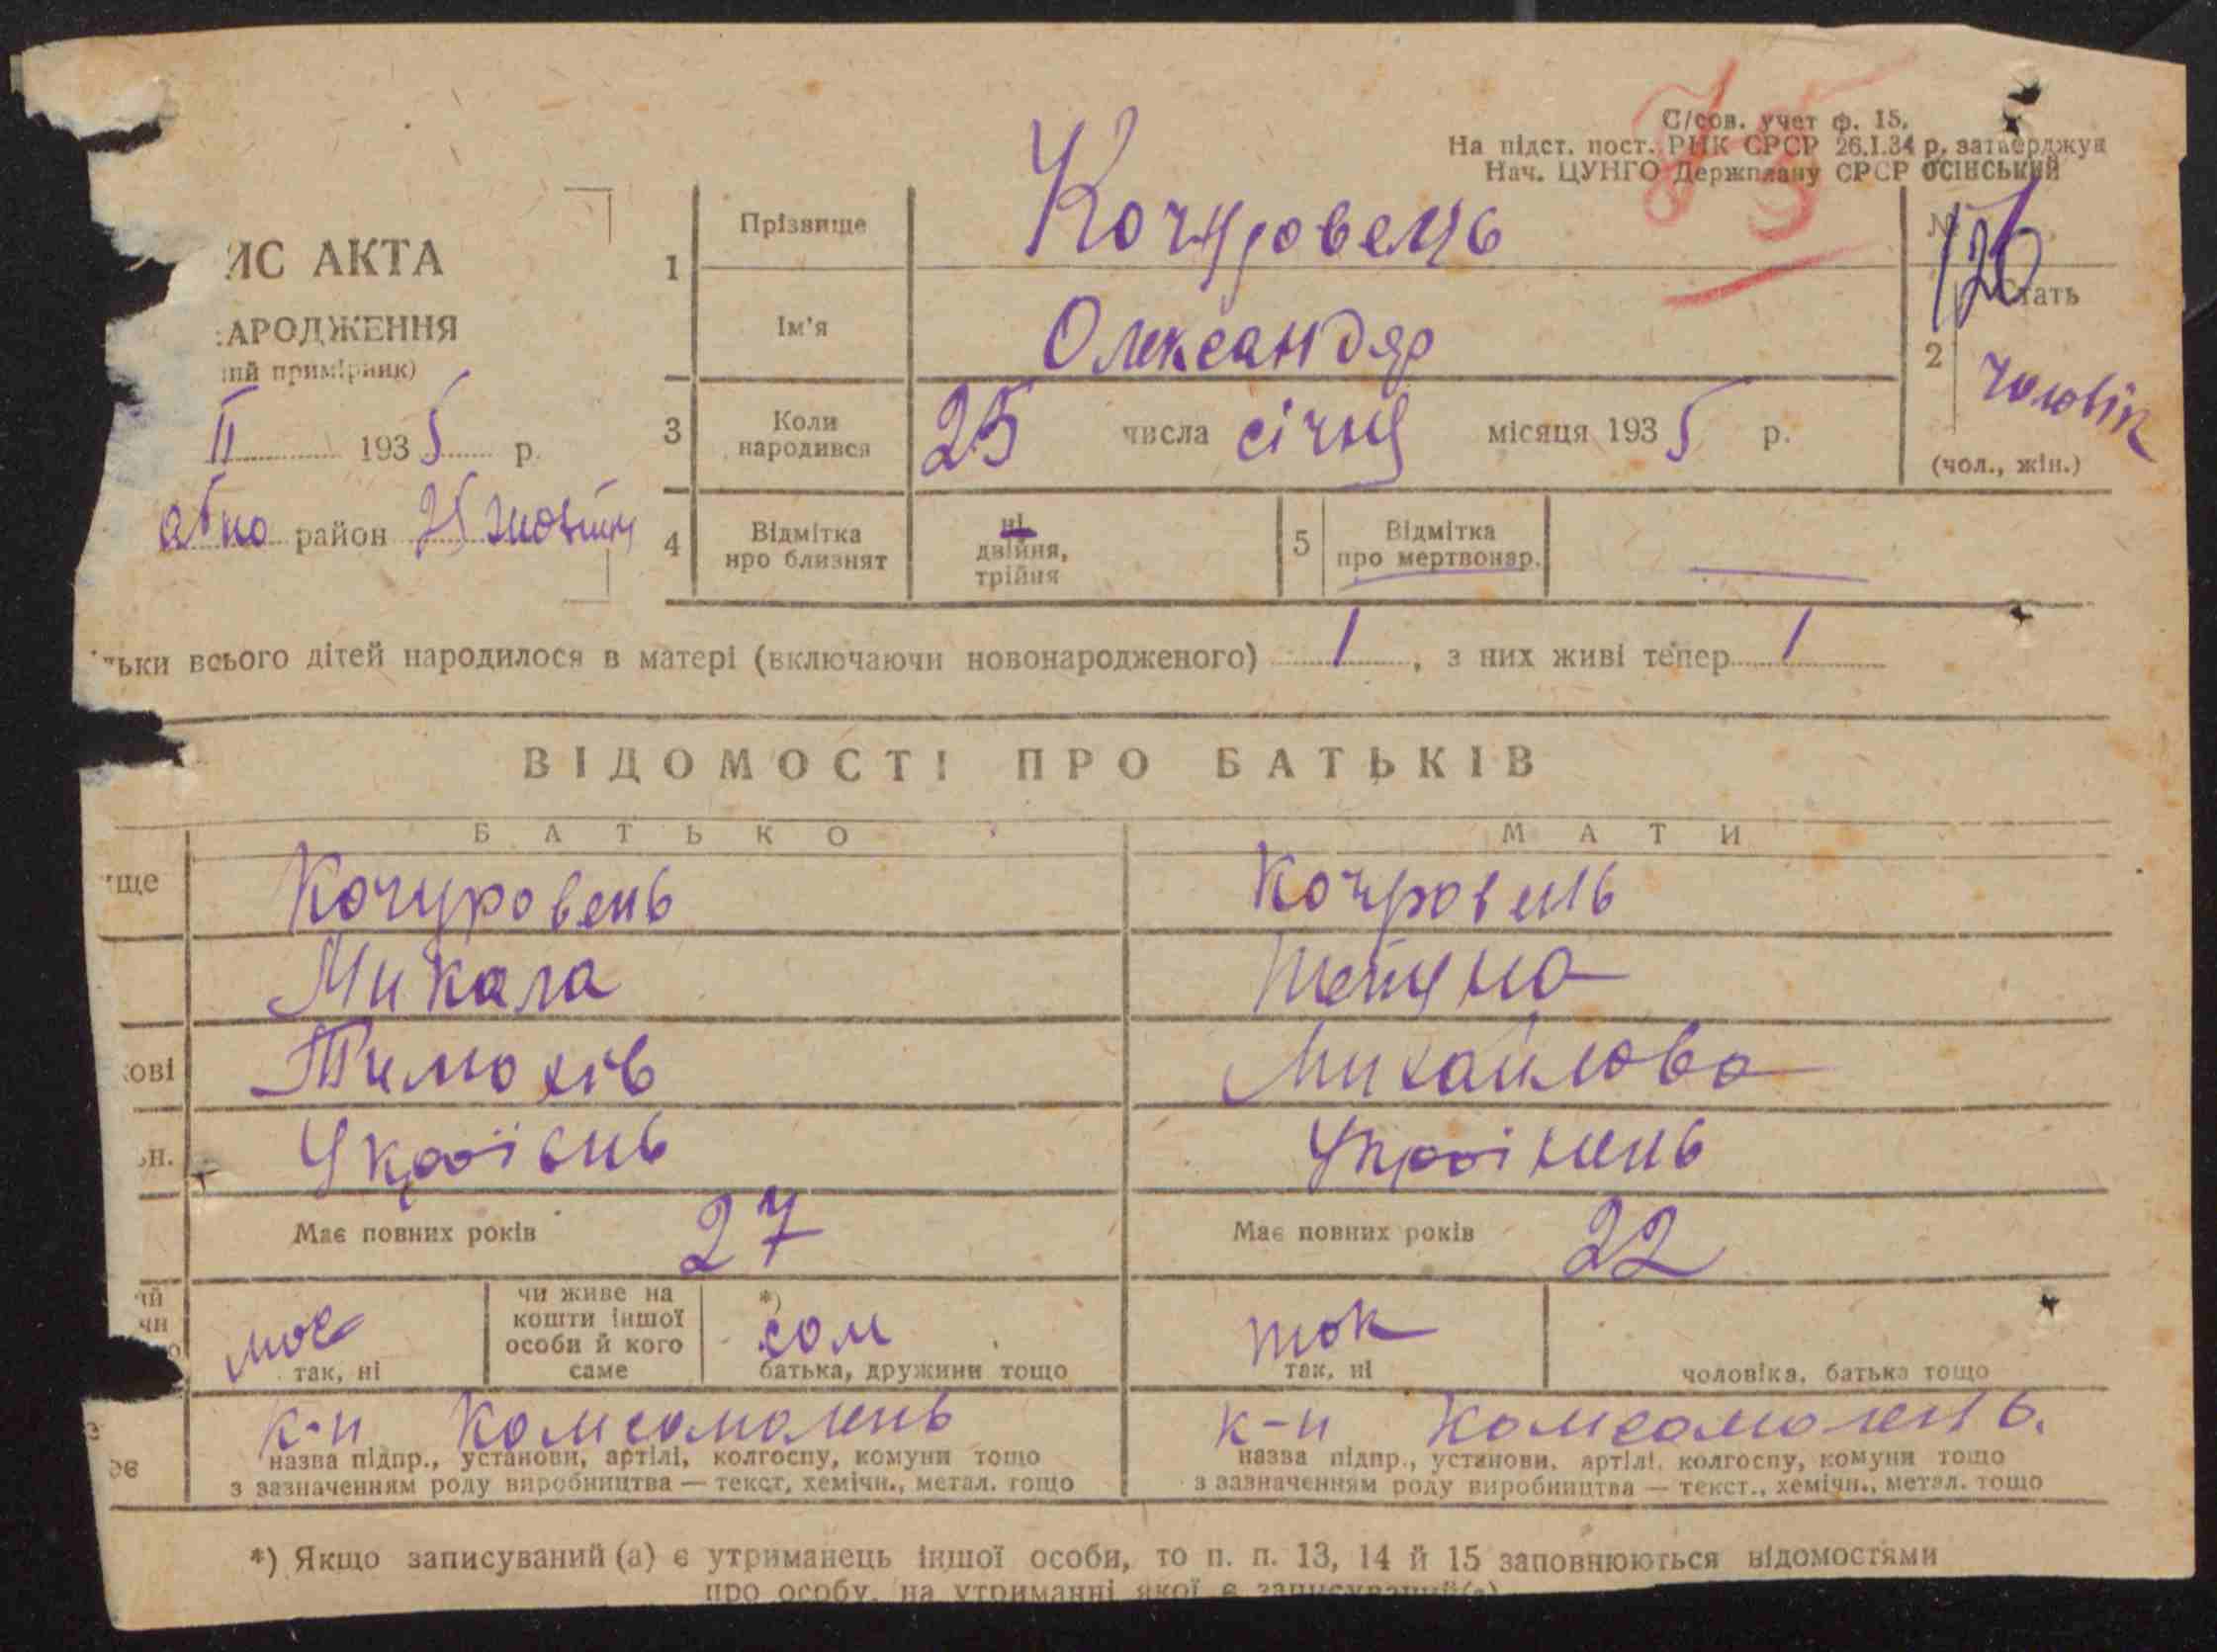 С/сов. учет ф. 15.
На підст. пост. РНК СРСР 26.I.34 р. затверджую
Нач. ЦУНГО Держплану СРСР ОСІНСЬКИЙ
75
ИС АКТА
АРОДЖЕННЯ
ий примірник)
II 1935 р.
район
1
Прізвище
Кочуровець
№ 126
Ім'я
Олександр
2
Стать
чоловік
(чол., жін.)
3
Коли народився
25 числа січня місяця 1935 р.
4
Відмітка
про близнят
ні
двійня,
трійня
5
Відмітка
про мертвонар.
—
ьки всього дітей народилося в матері (включаючи новонародженого) 1, з них живі тепер 1
ВІДОМОСТІ ПРО БАТЬКІВ
БАТЬКО МАТИ
ще Кочуровець Кочровець
Микала Тетяна
ові Тимохів Михайлова
ьн. Украіець Украінець
Має повних років 27 Має повних років 22
ий
чи
чи живе на
кошти іншої
особи й кого
саме
*)
сам
так
так, ні
батька, дружини тощо
так, ні
чоловіка, батька тощо
к-п Комсомолець к-п Комсомолець.
назва підпр., установи, артілі, колгоспу, комуни тощо назва підпр., установи, артілі, колгоспу, комуни тощо
з зазначенням роду виробництва — текст, хемічн., метал. тощо з зазначенням роду виробництва — текст., хемічн., метал. тощо
*) Якщо записуваний (а) є утриманець іншої особи, то п. п. 13, 14 й 15 заповнюються відомостями
про особу, на утриманні якої є записуваний(а)